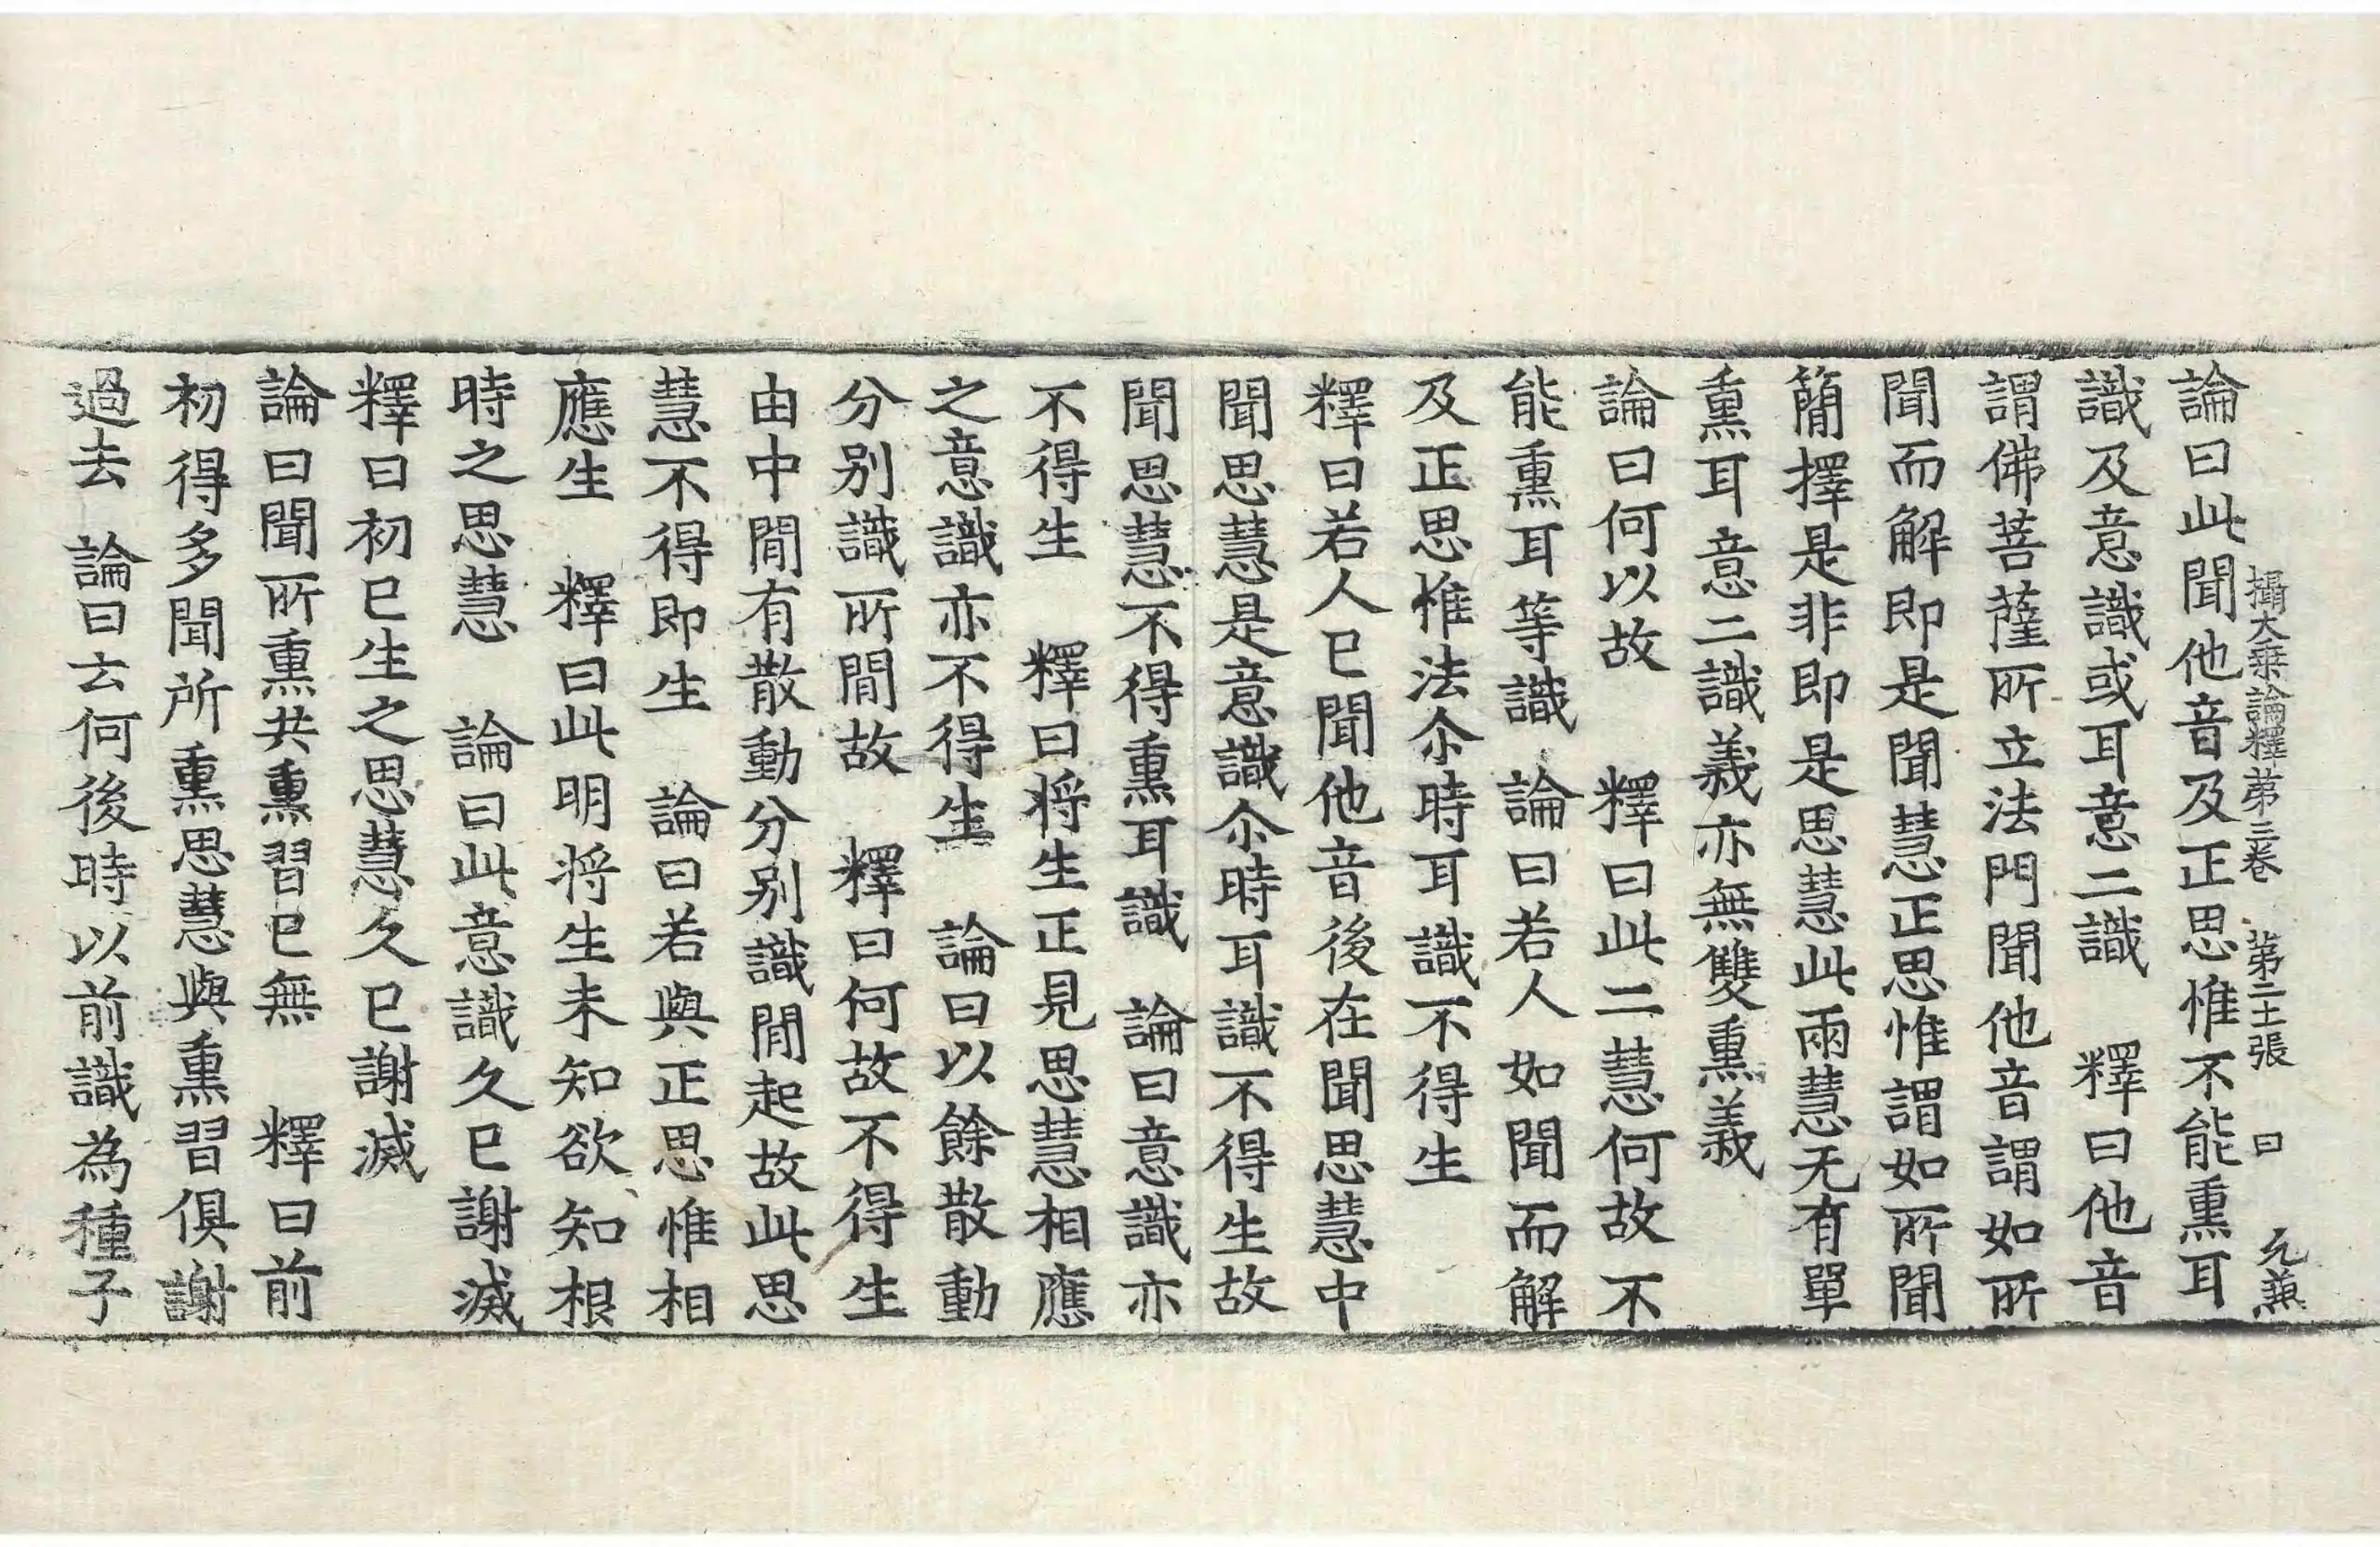 攝大乗論釋苐三卷 苐二十張 曰 允兼
論曰此聞他音及正思惟不能熏耳
識及意識或耳意二識 釋曰他音
謂佛菩薩所立法門聞他音謂如所
聞而解即是聞慧正思惟謂如所聞
簡擇是非即是思慧此兩慧无有單
熏耳意二識義亦無雙熏義
論曰何以故 釋曰此二慧何故不
能熏耳等識 論曰若人如聞而解
及正思惟法尒時耳識不得生
釋曰若人已聞他音後在聞思慧中
聞思慧是意識尒時耳識不得生故
聞思慧不得熏耳識 論曰意識亦
不得生 釋曰将生正見思慧相應
之意識亦不得生 論曰以餘散動
分别識所間故 釋曰何故不得生
由中間有散動分别識間起故此思
慧不得即生 論曰若與正思惟相
應生 釋曰此明将生未知欲知根
時之思慧 論曰此意識久已謝滅
釋曰初已生之思慧久已謝滅
論曰聞所熏共熏習已無 釋曰前
初得多聞所熏思慧與熏習俱謝
過去 論曰云何後時以前識為種子